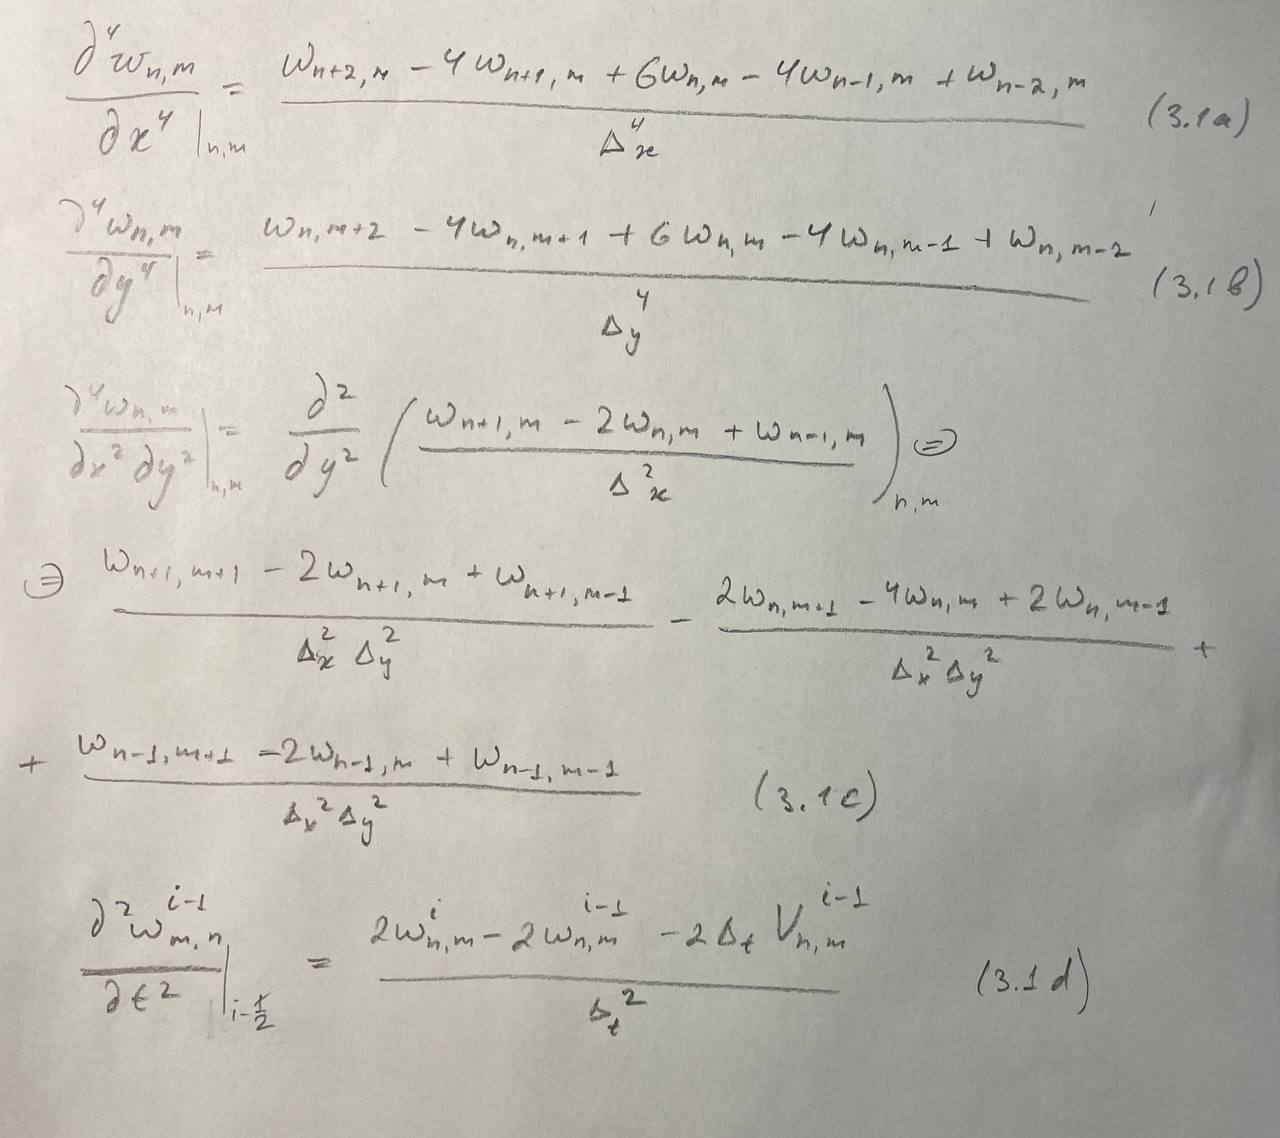 ∂⁴w_{n,m}/∂x⁴ |_{n,m} = (w_{n+2,m} − 4w_{n+1,m} + 6w_{n,m} − 4w_{n−1,m} + w_{n−2,m})/Δ_x⁴ (3.1a)
∂⁴w_{n,m}/∂y⁴ |_{n,m} = (w_{n,m+2} − 4w_{n,m+1} + 6w_{n,m} − 4w_{n,m−1} + w_{n,m−2})/Δ_y⁴ (3.1b)
∂⁴w_{n,m}/∂x²∂y² |_{n,m} = ∂²/∂y² ((w_{n+1,m} − 2w_{n,m} + w_{n−1,m})/Δ_x²)_{n,m} ⊜
⊜ (w_{n+1,m+1} − 2w_{n+1,m} + w_{n+1,m−1})/(Δ_x² Δ_y²) − (2w_{n,m+1} − 4w_{n,m} + 2w_{n,m−1})/(Δ_x² Δ_y²) +
+ (w_{n−1,m+1} − 2w_{n−1,m} + w_{n−1,m−1})/(Δ_x² Δ_y²) (3.1c)
∂²w_{m,n}^{i−1}/∂t² |_{i−1/2} = (2w_{n,m}^{i} − 2w_{n,m}^{i−1} − 2Δ_t V_{n,m}^{i−1})/Δ_t² (3.1d)